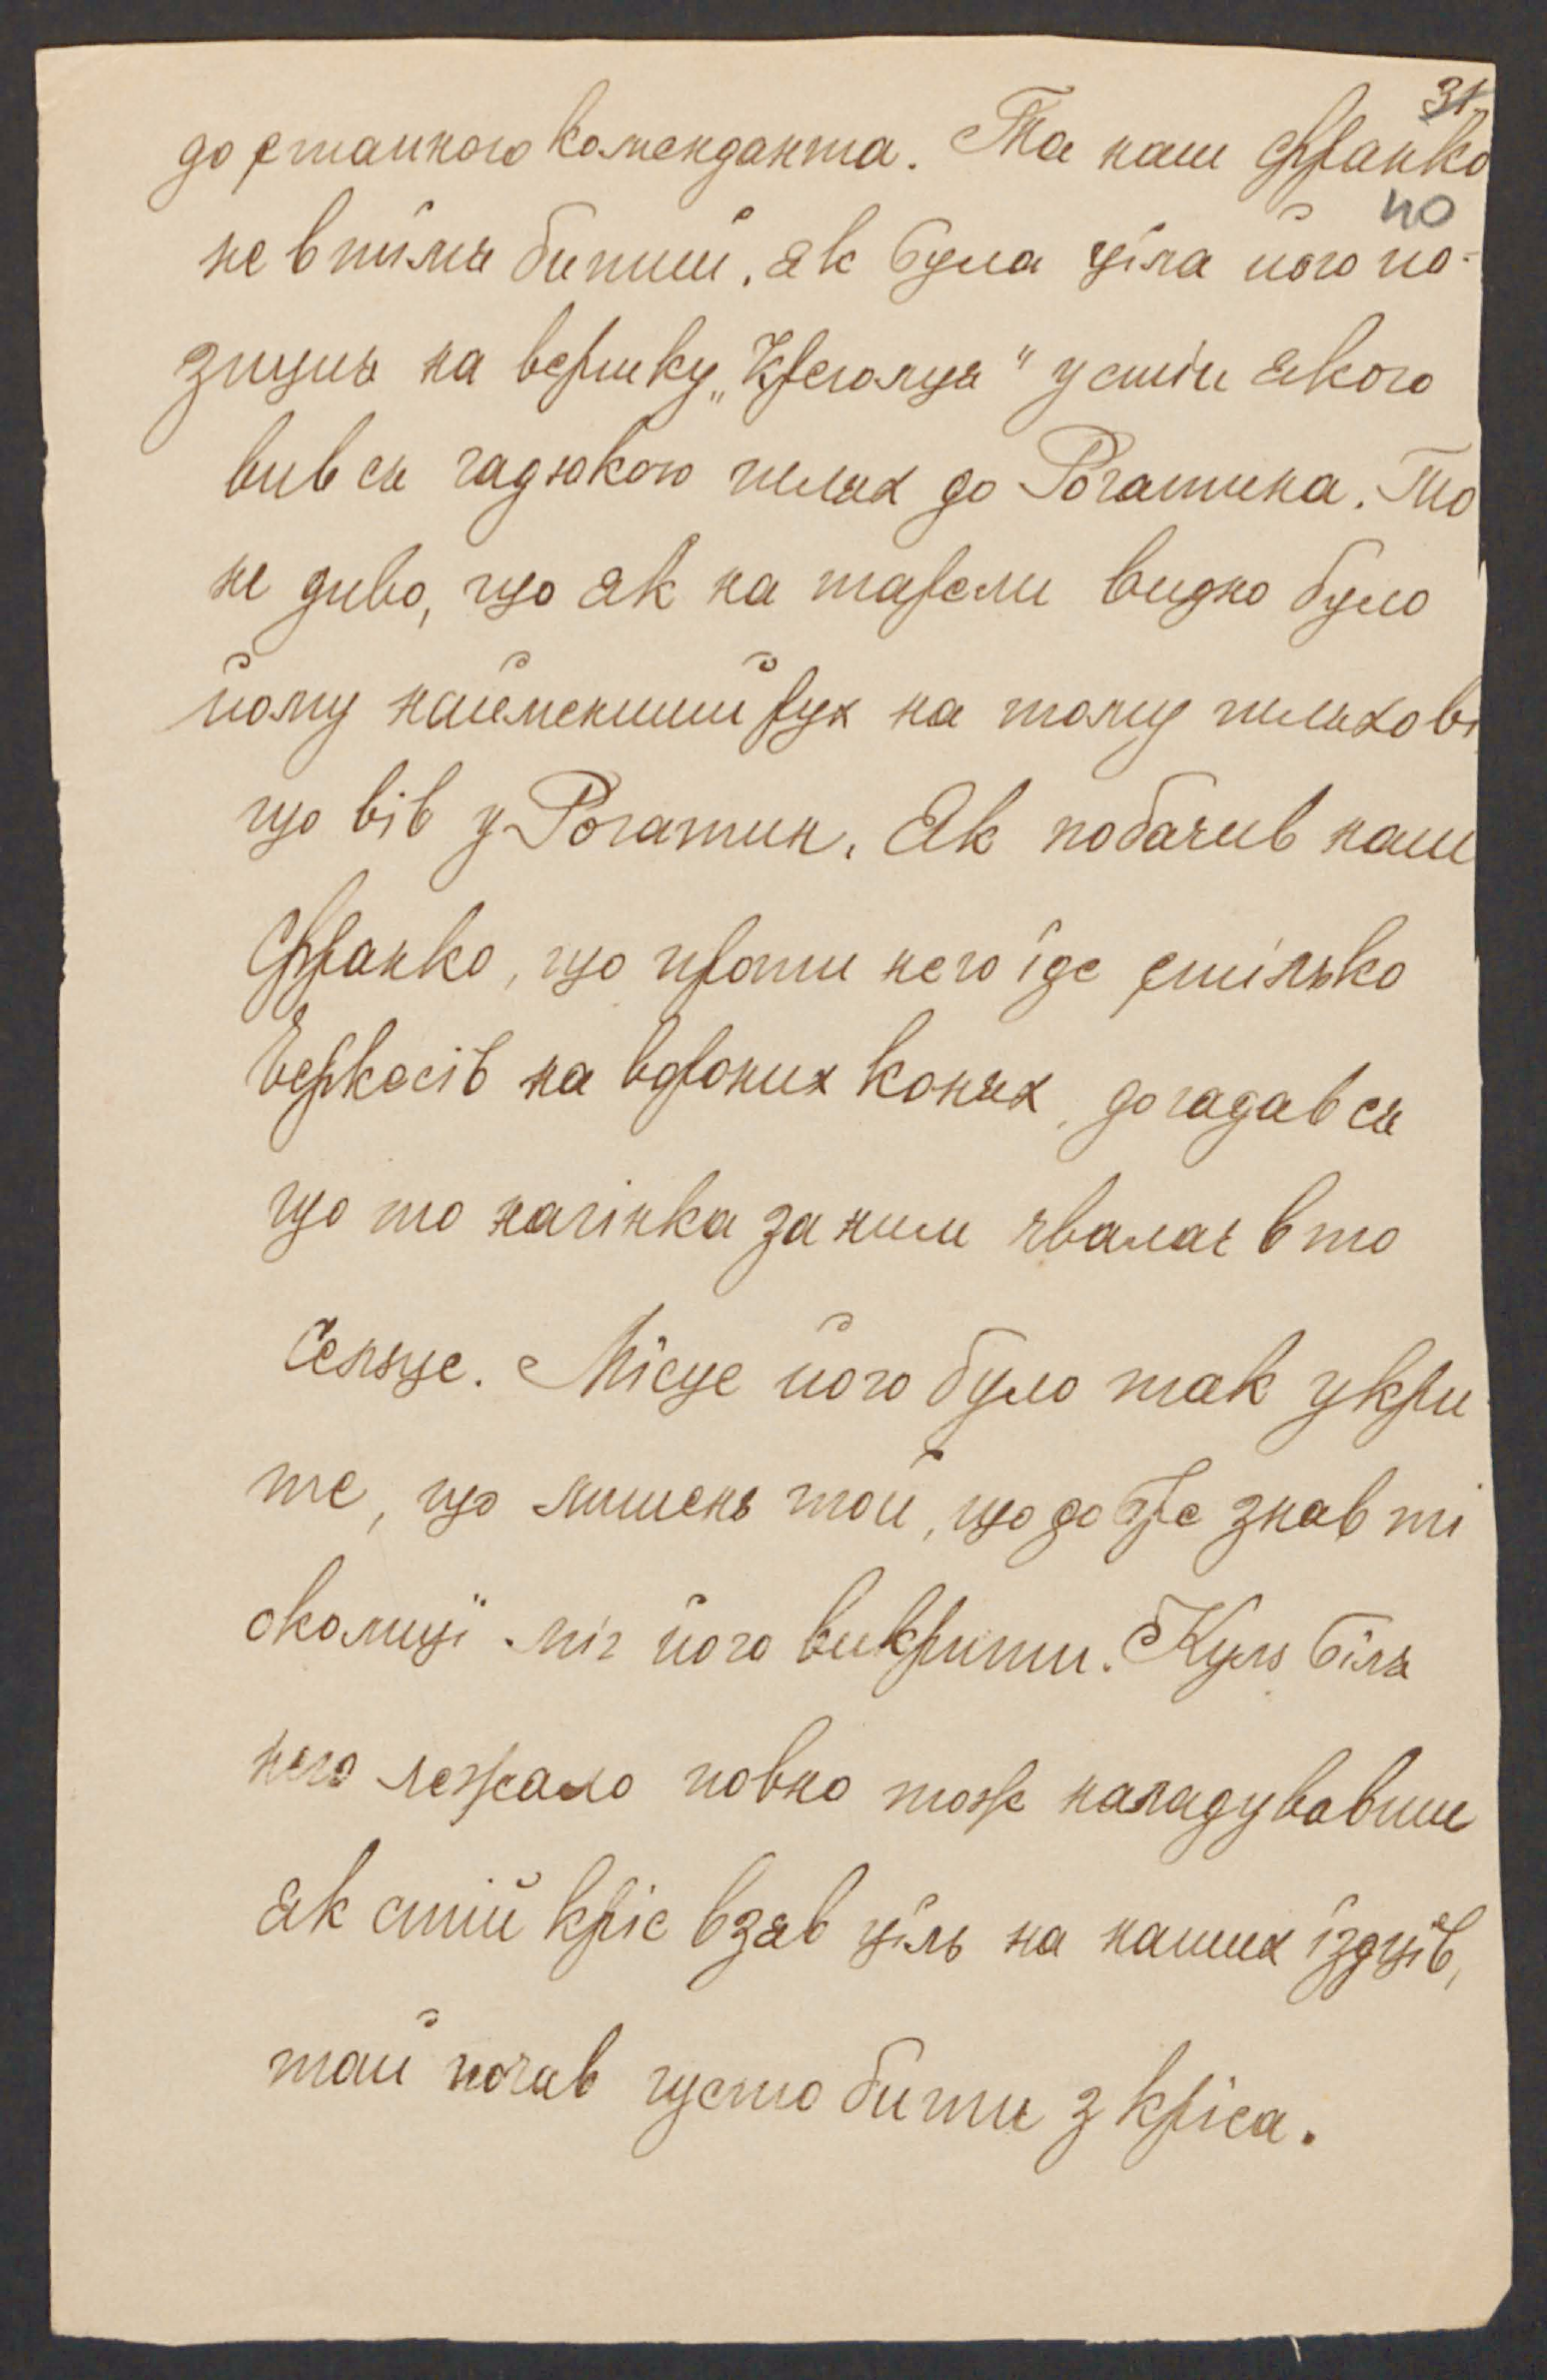 31
до єтапного коменданта. Та наш Франко
40
не втїмя битий. Як була цїла його по-
зиция на вершку „Креголця" у стіп якого
вив ся гадюкою шлях до Рогатина. То
не диво, що як на тарели видно було
йому найменший рух на тому шляхови
що вів у Рогатин. Як побачив наш
Франко, що проти него їде стілько
Черкесів на вороних конях, догадав ся
що то нагінка за ним чвалає в то
Сельце. Місце його було так укри
те, що лишень той, що добре знав ті
околицї міг його викрити. Куль біля
него лежало повно тож наладувавши
як стій кріс взяв ціль на наших їздцїв,
тай почав густо бити з кріса.